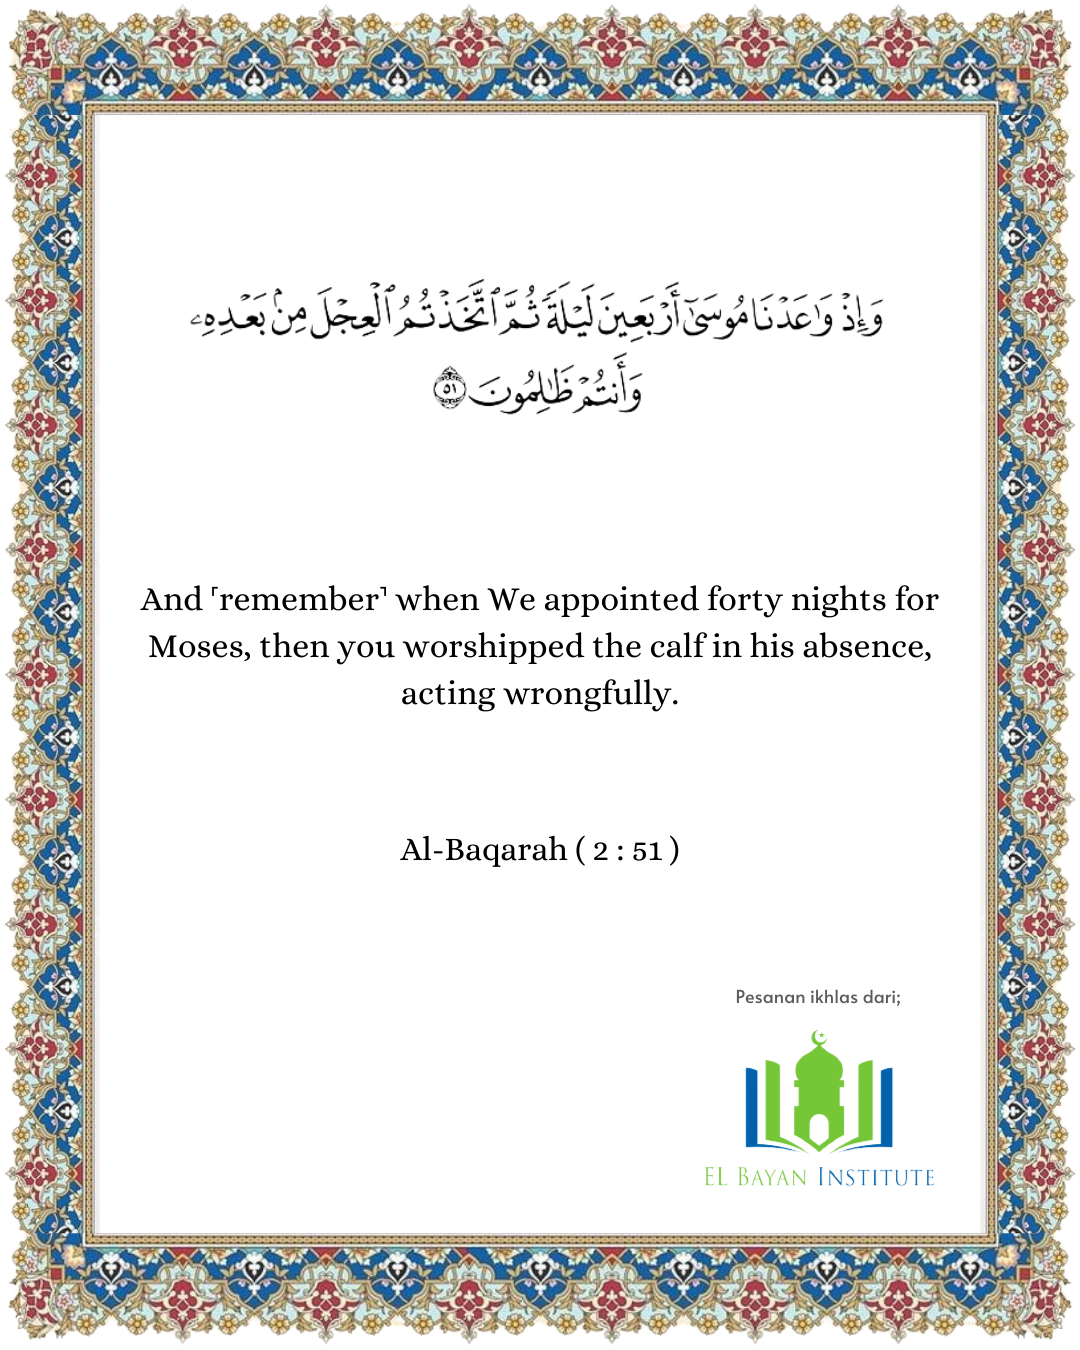 وَإِذْ وَٰعَدْنَا مُوسَىٰٓ أَرْبَعِينَ لَيْلَةً ثُمَّ ٱتَّخَذْتُمُ ٱلْعِجْلَ مِنۢ بَعْدِهِۦ
وَأَنتُمْ ظَٰلِمُونَ ٥١
And ˹remember˺ when We appointed forty nights for
Moses, then you worshipped the calf in his absence,
acting wrongfully.
Al-Baqarah ( 2 : 51 )
Pesanan ikhlas dari;
EL BAYAN INSTITUTE